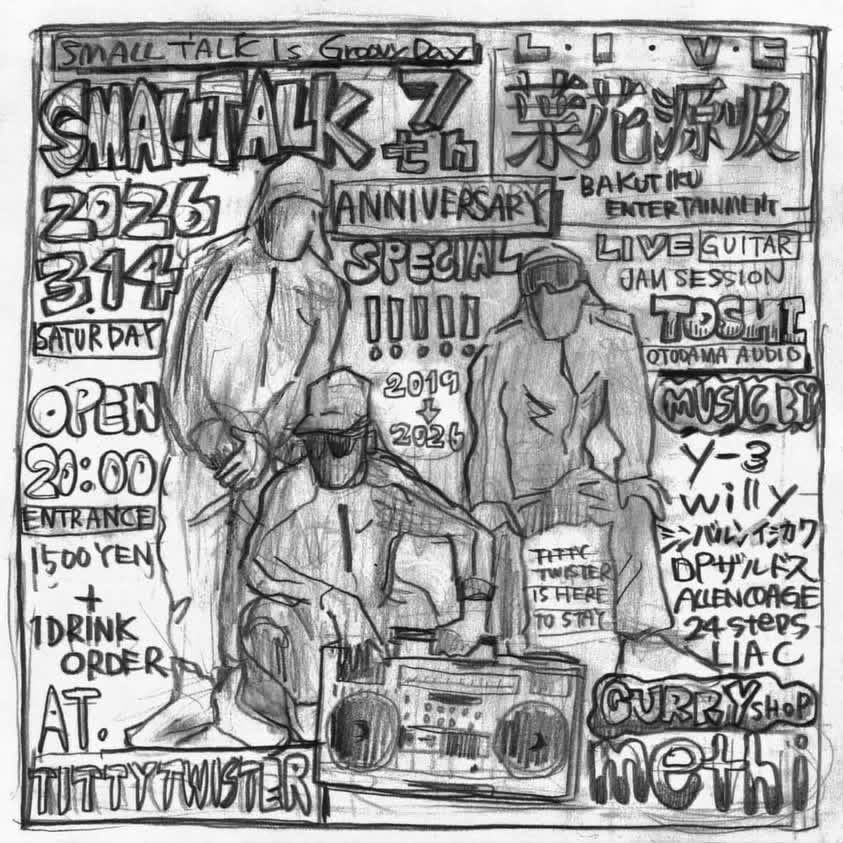 SMALL TALK Is Groovy Day
SMALLTALK 7th
ANNIVERSARY
SPECIAL
!!!!!
2019
↓
2026
2026
3.14
SATURDAY
OPEN
20:00
ENTRANCE
1500 YEN
+
1DRINK
ORDER
AT.
TITTYTWISTER
L・I・V・E
葉花源
BAKUTIKU
ENTERTAINMENT
LIVE GUITAR
JAM SESSION
TOSHI
OTODAMA AUDIO
MUSIC BY
Y-3
willy
シンバルンイシカワ
DPザルドス
ALLENCOAGE
24 steps
LIAC
TWISTER
IS HERE
TO STAY
CURRY SHOP
methi